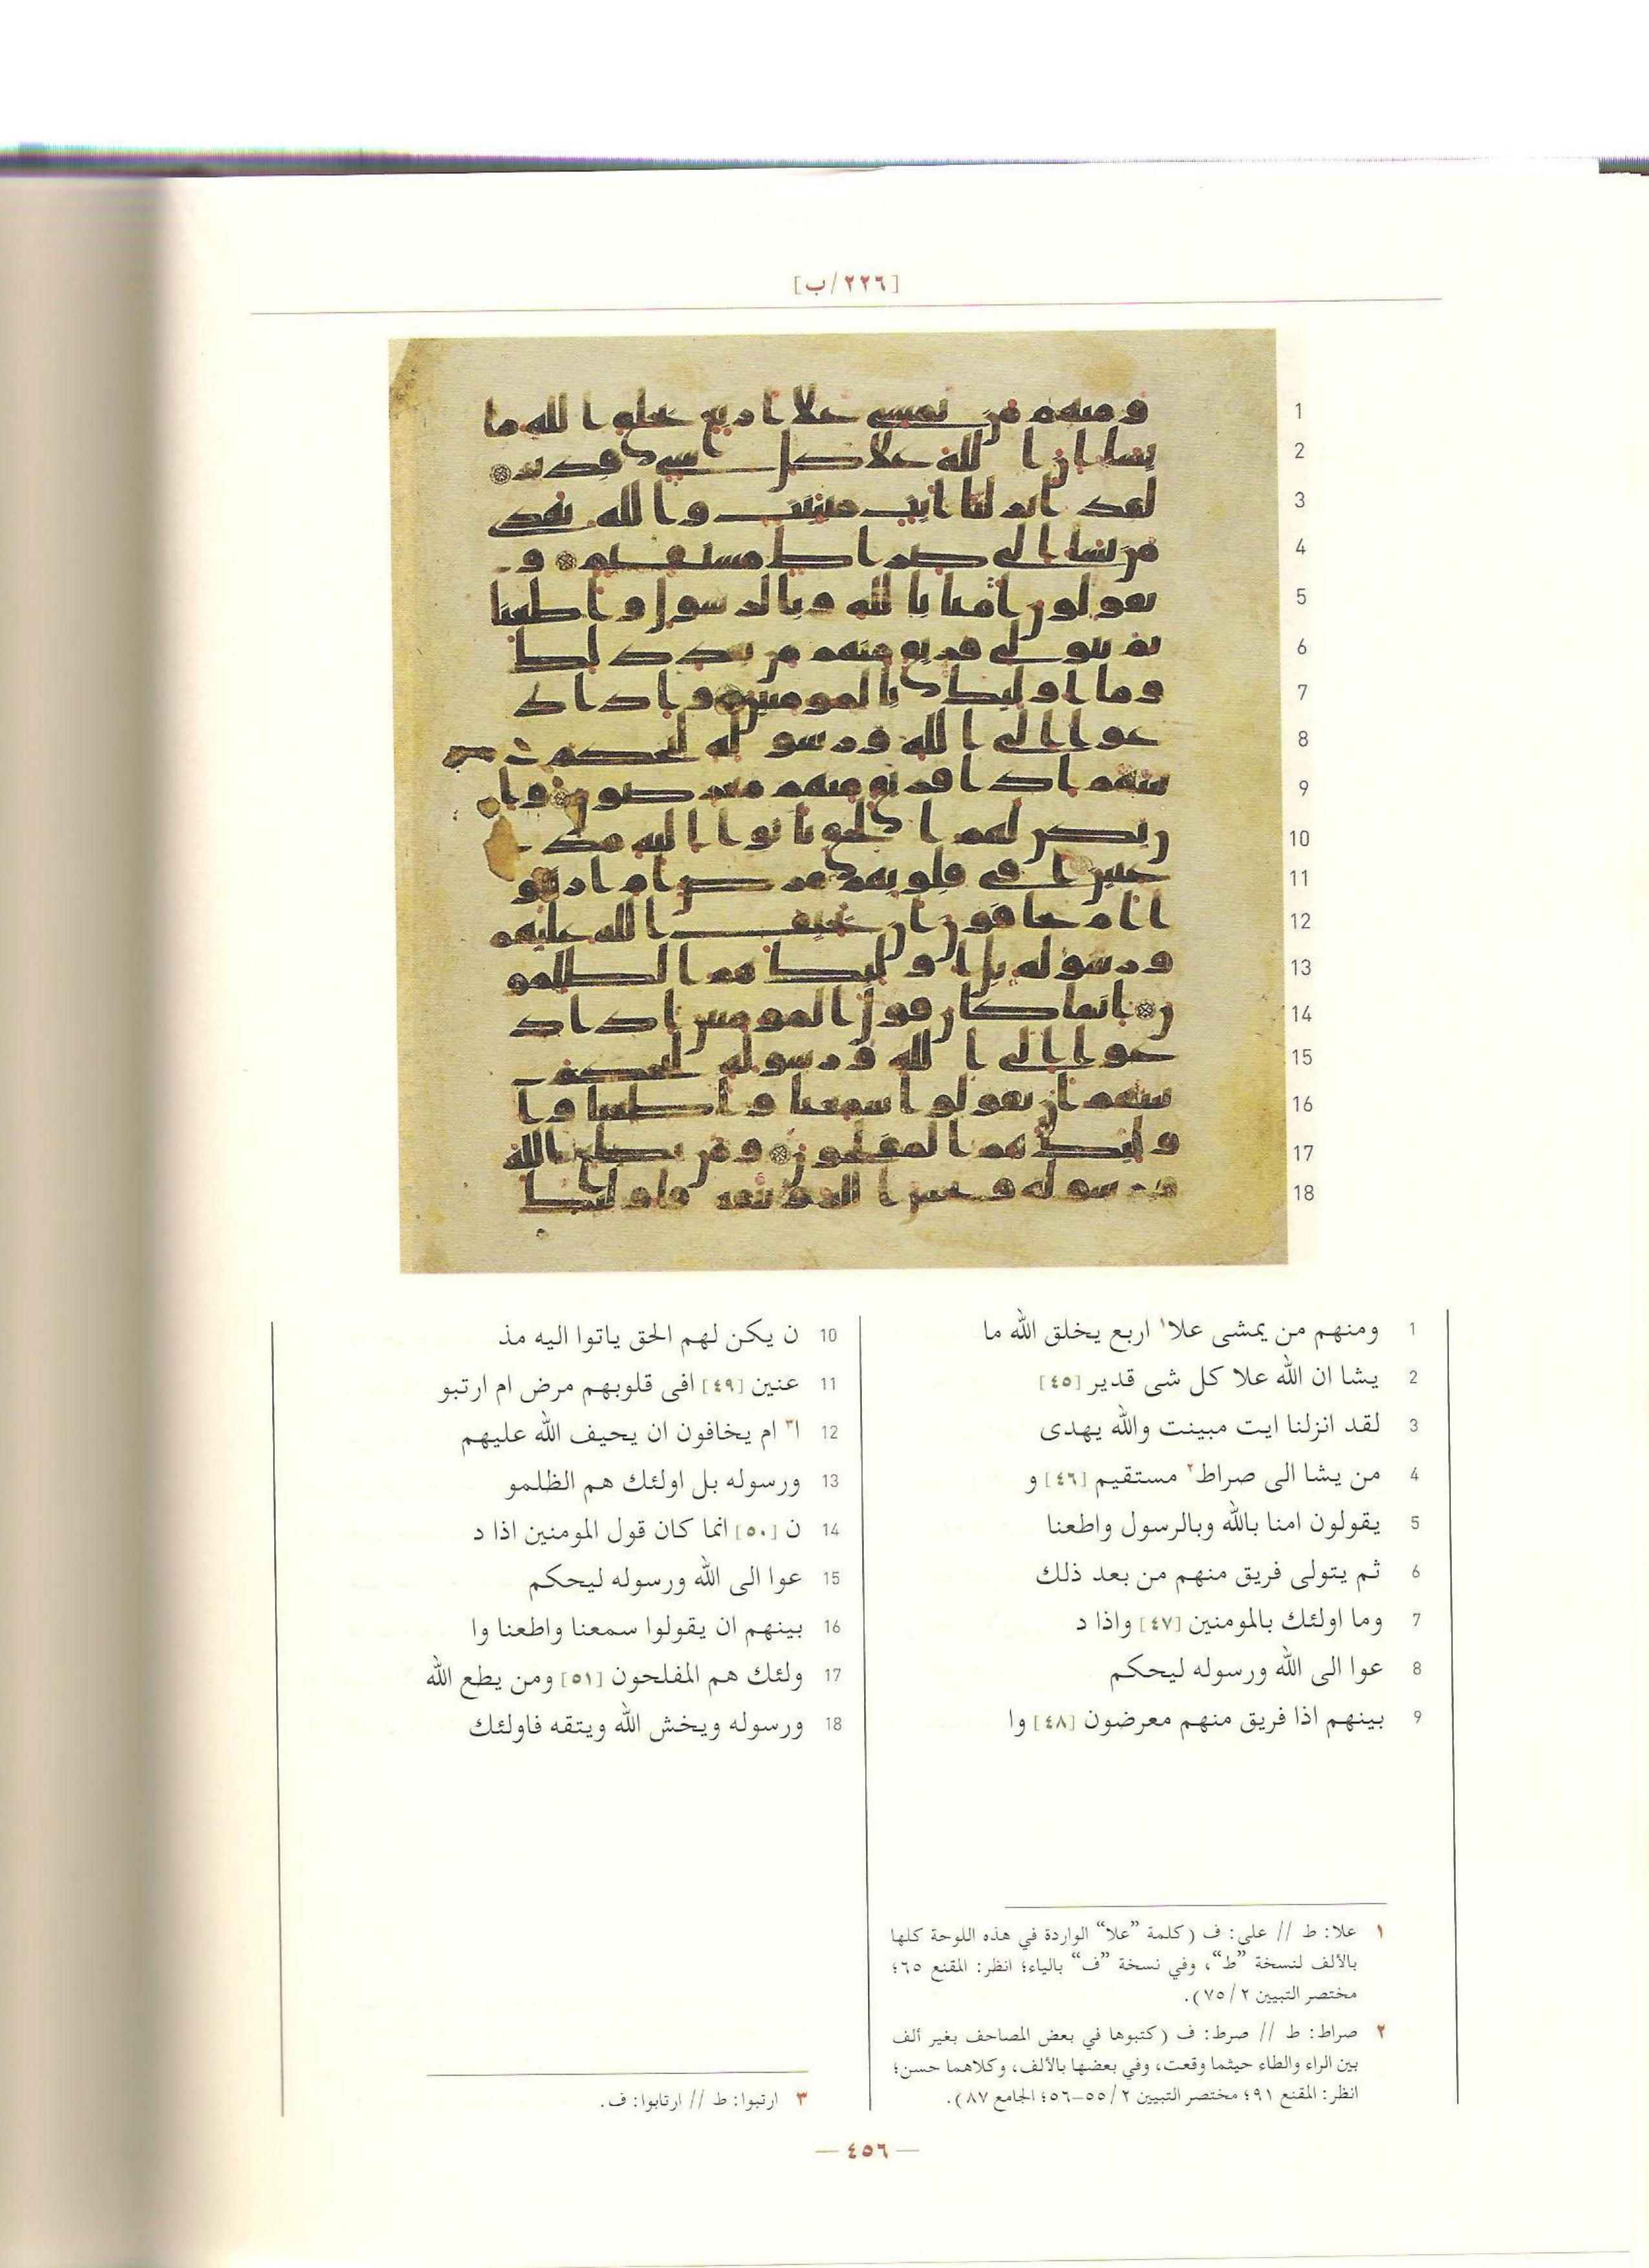 [٢٢٦/ب]
1 ومنهم من يمشى علا١ اربع يخلق الله ما
2 يشا ان الله علا كل شى قدير [٤٥]
3 لقد انزلنا ايت مبينت والله يهدى
4 من يشا الى صراط٢ مستقيم [٤٦] و
5 يقولون امنا بالله وبالرسول واطعنا
6 ثم يتولى فريق منهم من بعد ذلك
7 وما اولئك بالمومنين [٤٧] واذا د
8 عوا الى الله ورسوله ليحكم
9 بينهم اذا فريق منهم معرضون [٤٨] وا
10 ن يكن لهم الحق ياتوا اليه مذ
11 عنين [٤٩] افى قلوبهم مرض ام ارتبو
12 ا٣ ام يخافون ان يحيف الله عليهم
13 ورسوله بل اولئك هم الظلمو
14 ن [٥٠] انما كان قول المومنين اذا د
15 عوا الى الله ورسوله ليحكم
16 بينهم ان يقولوا سمعنا واطعنا وا
17 ولئك هم المفلحون [٥١] ومن يطع الله
18 ورسوله ويخش الله ويتقه فاولئك
١ علا: ط // على: ف (كلمة ”علا“ الواردة في هذه اللوحة كلها
بالألف لنسخة ”ط“، وفي نسخة ”ف“ بالياء؛ انظر: المقنع ٦٥؛
مختصر التبيين ٧٥/٢).
٢ صراط: ط // صرط: ف (كتبوها في بعض المصاحف بغير ألف
بين الراء والطاء حيثما وقعت، وفي بعضها بالألف، وكلاهما حسن؛
انظر: المقنع ٩١؛ مختصر التبيين ٥٥/٢–٥٦؛ الجامع ٨٧).
٣ ارتبوا: ط // ارتابوا: ف.
— ٤٥٦ —